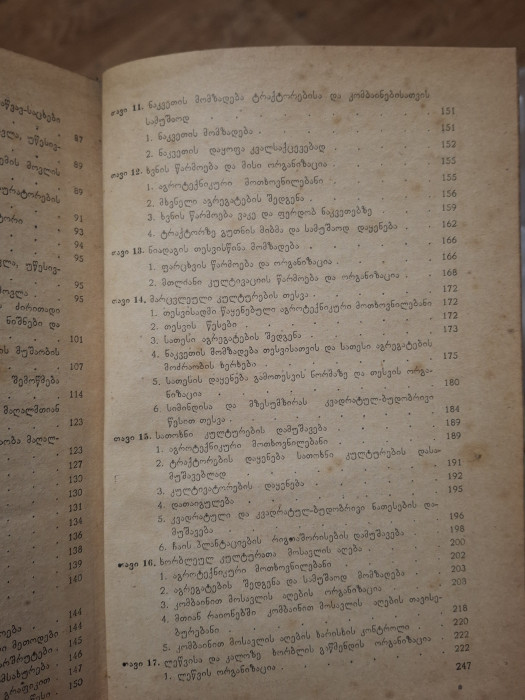 აწვავ-საცხები
87
ვლა, უწესივ-
89
ემის მოვლის
89
ურატორების
91
ტორი
93
94
ვლა, უწესივ-
95
95
მოვლა
95
ა ძირითადი
ნიშნები და
101
ის მუშაობის
107
შემოწმება
114
მაღალმთიან
123
აობა მაღალ-
123
127
130
130
131
134
136
138
139
140
144
ოება 144
ი მეთოდები 145
რშრუტები 146
მსახურება 147
გრაფიკით 150
წესი
თავი 11. ნაკვეთის მომზადება ტრაქტორებისა და კომბაინებისათვის
სამუშაოდ 151
1. ნაკვეთის მომზადება 151
2. ნაკვეთის დაყოფა კვალსაქცევებად 152
თავი 12. ხვნის წარმოება და მისი ორგანიზაცია 155
1. აგროტექნიკური მოთხოვნილებანი 155
2. მხვნელი აგრეგატების შედგენა 156
3. ხვნის წარმოება ვაკე და ფერდობ ნაკვეთებზე 159
4. ტრაქტორზე გუთნის მიბმა და სამუშაოდ დაყენება 162
თავი 13. ნიადაგის თესვისწინა მომზადება 166
1. ფარცხვის წარმოება და ორგანიზაცია 166
2. მთლიანი კულტივაციის წარმოება და ორგანიზაცია 168
თავი 14. მარცვლეული კულტურების თესვა 172
1. თესვისადმი წაყენებული აგროტექნიკური მოთხოვნილებანი 172
2. თესვის წესები 172
3. სათესი აგრეგატების შედგენა 173
4. ნაკვეთის მომზადება თესვისათვის და სათესი აგრეგატების
მოძრაობის ხერხები 175
5. სათესის დაყენება გამოთესვის ნორმაზე და თესვის ორგა-
ნიზაცია 180
6. სიმინდისა და მზესუმზირას კვადრატულ-ბუდობრივი
წესით თესვა 184
თავი 15. სათოხნი კულტურების დამუშავება 189
1. აგროტექნიკური მოთხოვნილებანი 189
2. ტრაქტორების დაყენება სათოხნი კულტურების დასა-
მუშავებლად 191
3. კულტივატორების დაყენება 192
4. დათაიგულება 195
5. კვადრატული და კვადრატულ-ბუდობრივი ნათესების და-
მუშავება 196
6. ჩაის პლანტაციების რიგთაშორისების დამუშავება 198
თავი 16. ხორბლეულ კულტურათა მოსავლის აღება 200
1. აგროტექნიკური მოთხოვნილებანი 202
2. აგრეგატების შედგენა და სამუშაოდ მომზადება 203
3. კომბაინით მოსავლის აღების ორგანიზაცია 208
4. მთიან რაიონებში კომბაინით მოსავლის აღების თავისე-
ბურებანი 218
5. კომბაინით მოსავლის აღების ხარისხის კონტროლი 220
თავი 17. ლეწვისა და კალოზე ხორბლის გაწმენდის ორგანიზაცია 222
1. ლეწვის ორგანიზაცია 222
247